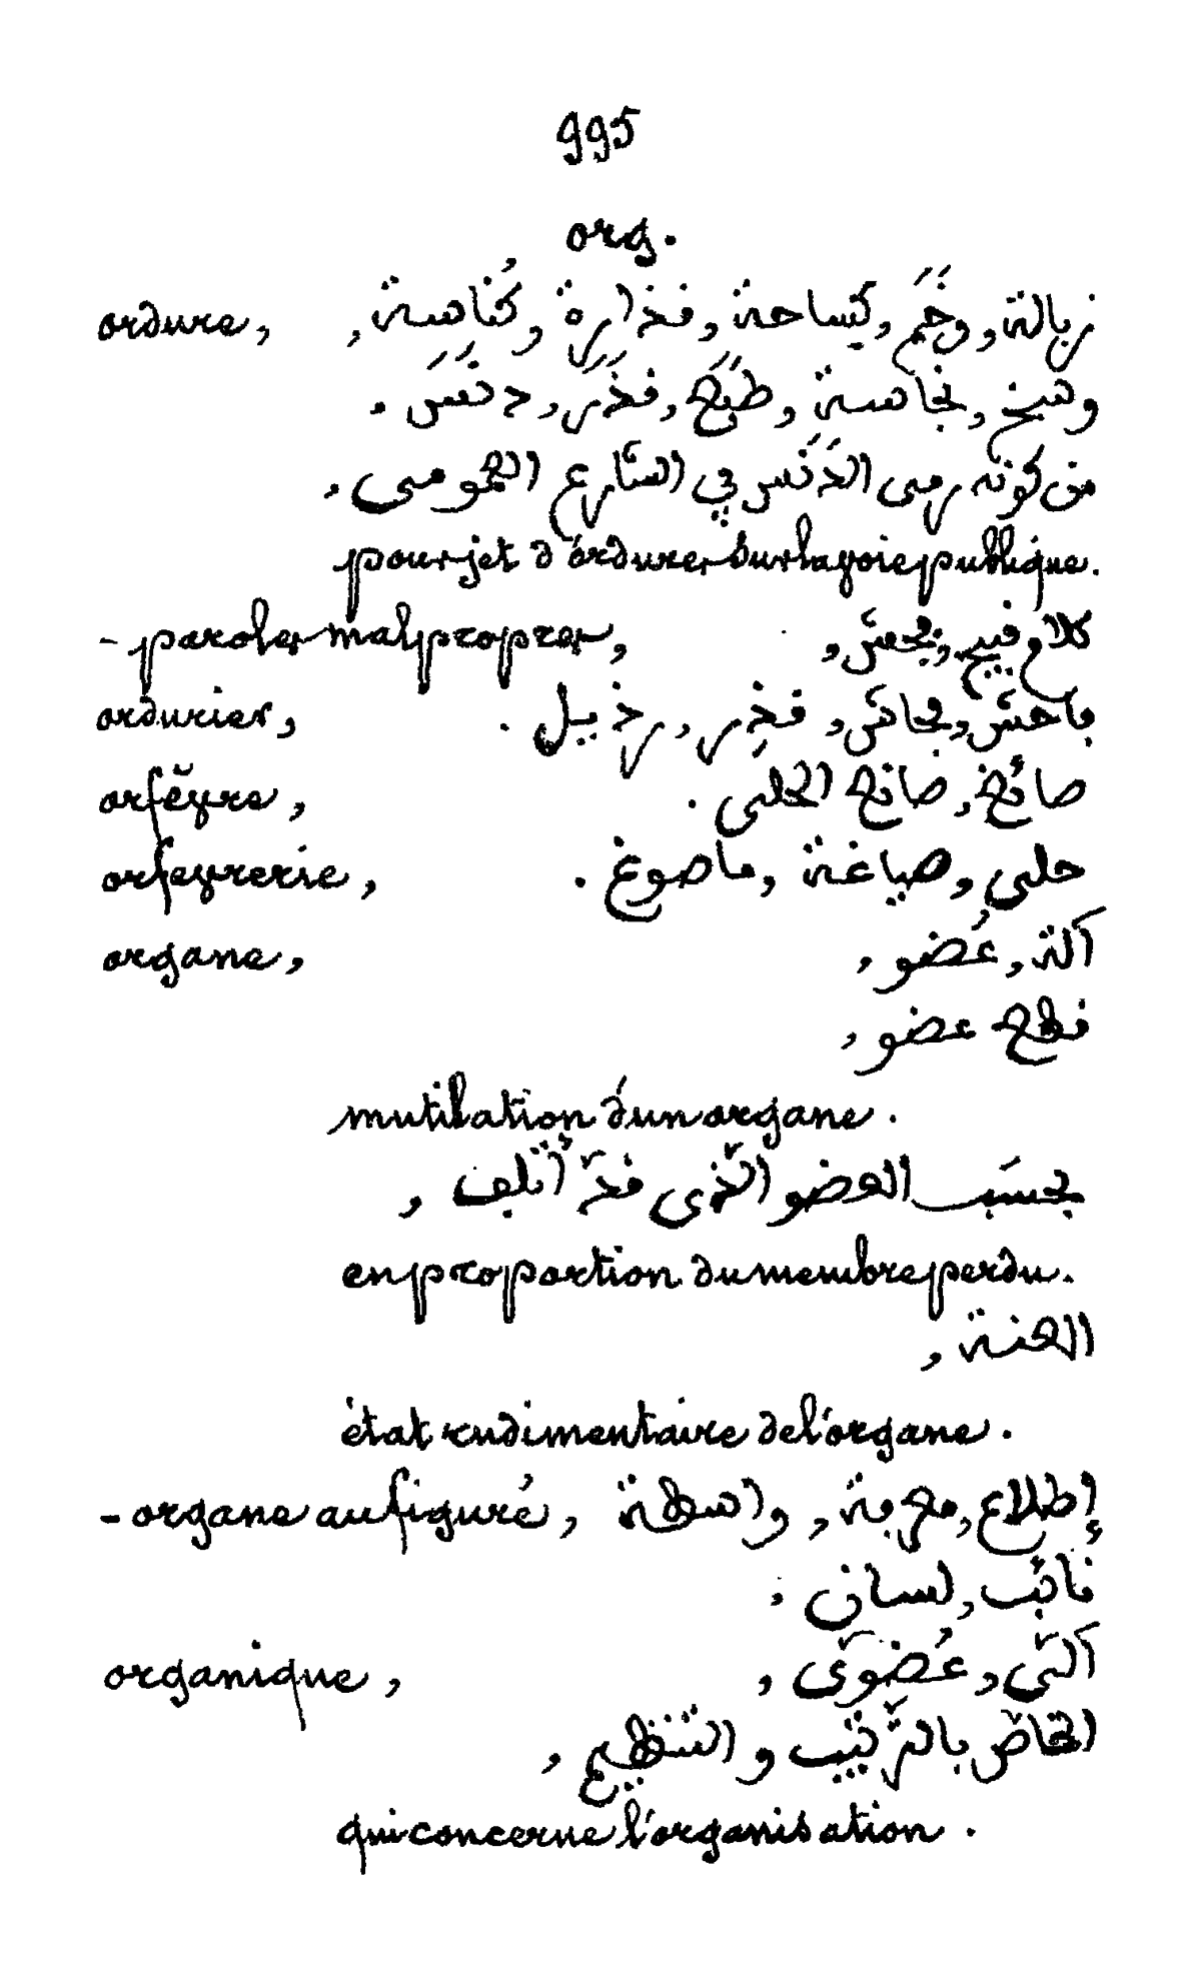 995
org.
ordure, زبالة, وخَم, كساحة, قذارة, كُناسة,
وسخ, نجاسة, طبَع, قذَر, دنَس.
من كونه رمى الدَنَس في الشارع العمومى,
pour jet d'ordures sur la voie publique.
- paroles malpropres, كلام قبيح, فحش,
ordurier, فاحش, فحاش, قذِر, رذيل.
orfèvre, صائغ, صانع الحلى.
orfèvrerie, حلى, صياغة, ماصوغ.
organe, آلة, عُضو,
قطع عضو,
mutilation d'un organe.
بحسَب العضو الّذى قدّ أتلف,
en proportion du membre perdu.
الهنة,
état rudimentaire de l'organe.
- organe au figuré, إطلاع, معرفة, واسطة,
نائب, لسان.
organique, آلىّ, عُضوىّ,
الخاصّ بالترّتيب و التنظيم,
qui concerne l'organisation.